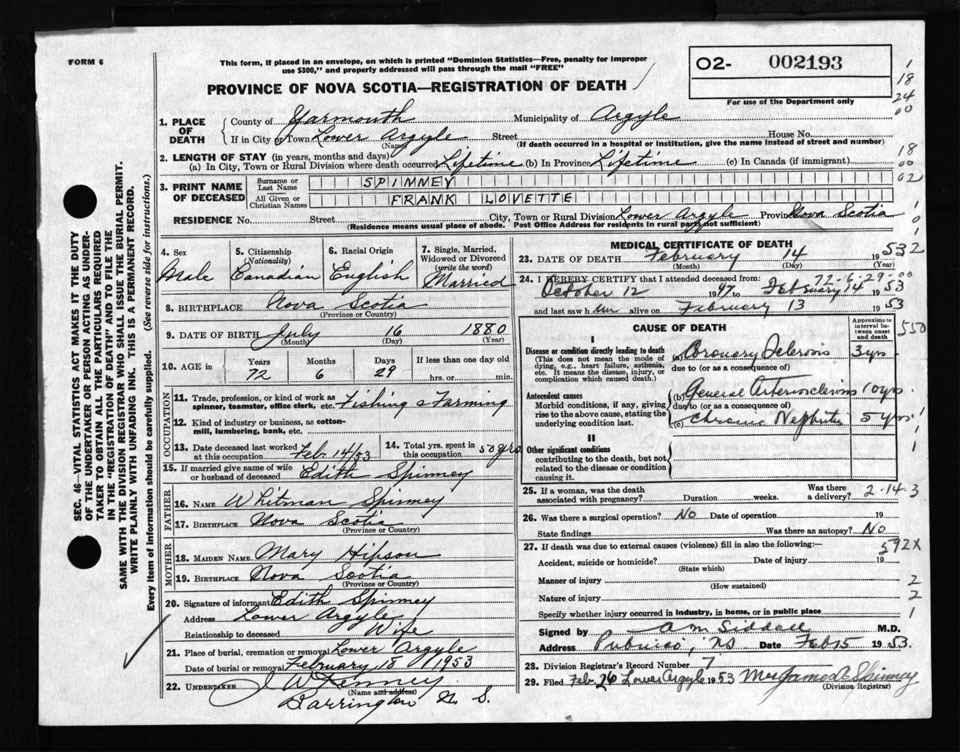 FORM 6
This form, if placed in an envelope, on which is printed "Dominion Statistics—Free, penalty for improper use $300," and properly addressed will pass through the mail "FREE"
PROVINCE OF NOVA SCOTIA—REGISTRATION OF DEATH
02- 002193
For use of the Department only
1. PLACE OF DEATH { County of Yarmouth Municipality of Argyle
If in City or Town Lower Argyle Street House No.
(Name) (If death occurred in a hospital or institution, give the name instead of street and number)
2. LENGTH OF STAY (in years, months and days)
(a) In City, Town or Rural Division where death occurred Lifetime (b) In Province Lifetime (c) In Canada (if immigrant)
3. PRINT NAME OF DECEASED { Surname or Last Name SPINNEY
All Given or Christian Names FRANK LOVETTE
RESIDENCE No. Street City, Town or Rural Division Lower Argyle Province Nova Scotia
(Residence means usual place of abode. Post Office Address for residents in rural parts not sufficient)
4. Sex Male
5. Citizenship (Nationality) Canadian
6. Racial Origin English
7. Single, Married, Widowed or Divorced (write the word) Married
8. BIRTHPLACE Nova Scotia
(Province or Country)
9. DATE OF BIRTH July 16 1880
(Month) (Day) (Year)
10. AGE in { Years 72 Months 6 Days 29 If less than one day old hrs. or min.
OCCUPATION
11. Trade, profession, or kind of work as spinner, teamster, office clerk, etc. Fishing & Farming
12. Kind of industry or business, as cotton-mill, lumbering, bank, etc.
13. Date deceased last worked at this occupation Feb 14/53
14. Total yrs. spent in this occupation 53 yrs
15. If married give name of wife or husband of deceased Edith Spinney
FATHER
16. NAME Whitman Spinney
17. BIRTHPLACE Nova Scotia
(Province or Country)
MOTHER
18. MAIDEN NAME Mary Hipson
19. BIRTHPLACE Nova Scotia
(Province or Country)
20. Signature of informant Edith Spinney
Address Lower Argyle
Relationship to deceased Wife
21. Place of burial, cremation or removal Lower Argyle
Date of burial or removal February 18 1953
22. UNDERTAKER J W Kenney
(Name and address)
Barrington N. S.
MEDICAL CERTIFICATE OF DEATH
23. DATE OF DEATH February 14 1953
(Month) (Day) (Year)
24. I HEREBY CERTIFY that I attended deceased from:
72-6-29-00
October 12 1947 to February 14 1953
and last saw him alive on February 13 1953
CAUSE OF DEATH
Approximate interval between onset and death
550
I
Disease or condition directly leading to death
(This does not mean the mode of dying, e.g., heart failure, asthenia, etc. It means the disease, injury, or complication which caused death.
(a) Coronary Sclerosis 3 yrs
due to (or as a consequence of)
Antecedent causes
Morbid conditions, if any, giving rise to the above cause, stating the underlying condition last.
(b) General Arteriosclerosis 10 yrs
due to (or as a consequence of)
(c) Chronic Nephritis 5 yrs
II
Other significant conditions
contributing to the death, but not related to the disease or condition causing it.
25. If a woman, was the death associated with pregnancy? Duration weeks. Was there a delivery? 2-14-3
26. Was there a surgical operation? No Date of operation 19
State findings Was there an autopsy? No
27. If death was due to external causes (violence) fill in also the following:— 592X
Accident, suicide or homicide? Date of injury 19
(State which)
Manner of injury
(How sustained)
Nature of injury
Specify whether injury occurred in industry, in home, or in public place
Signed by A M Siddall M.D.
Address Pubnico, NS Date Feb 15 1953
28. Division Registrar's Record Number 7
29. Filed Feb 26 Lower Argyle 1953 Mrs James Spinney
(Division Registrar)
SEC. 46—VITAL STATISTICS ACT MAKES IT THE DUTY OF THE UNDERTAKER OR PERSON ACTING AS UNDERTAKER TO OBTAIN ALL THE PARTICULARS REQUIRED IN THE "REGISTRATION OF DEATH" AND TO FILE THE SAME WITH THE DIVISION REGISTRAR WHO SHALL ISSUE THE BURIAL PERMIT.
WRITE PLAINLY WITH UNFADING INK. THIS IS A PERMANENT RECORD.
Every item of Information should be carefully supplied. (See reverse side for instructions.)